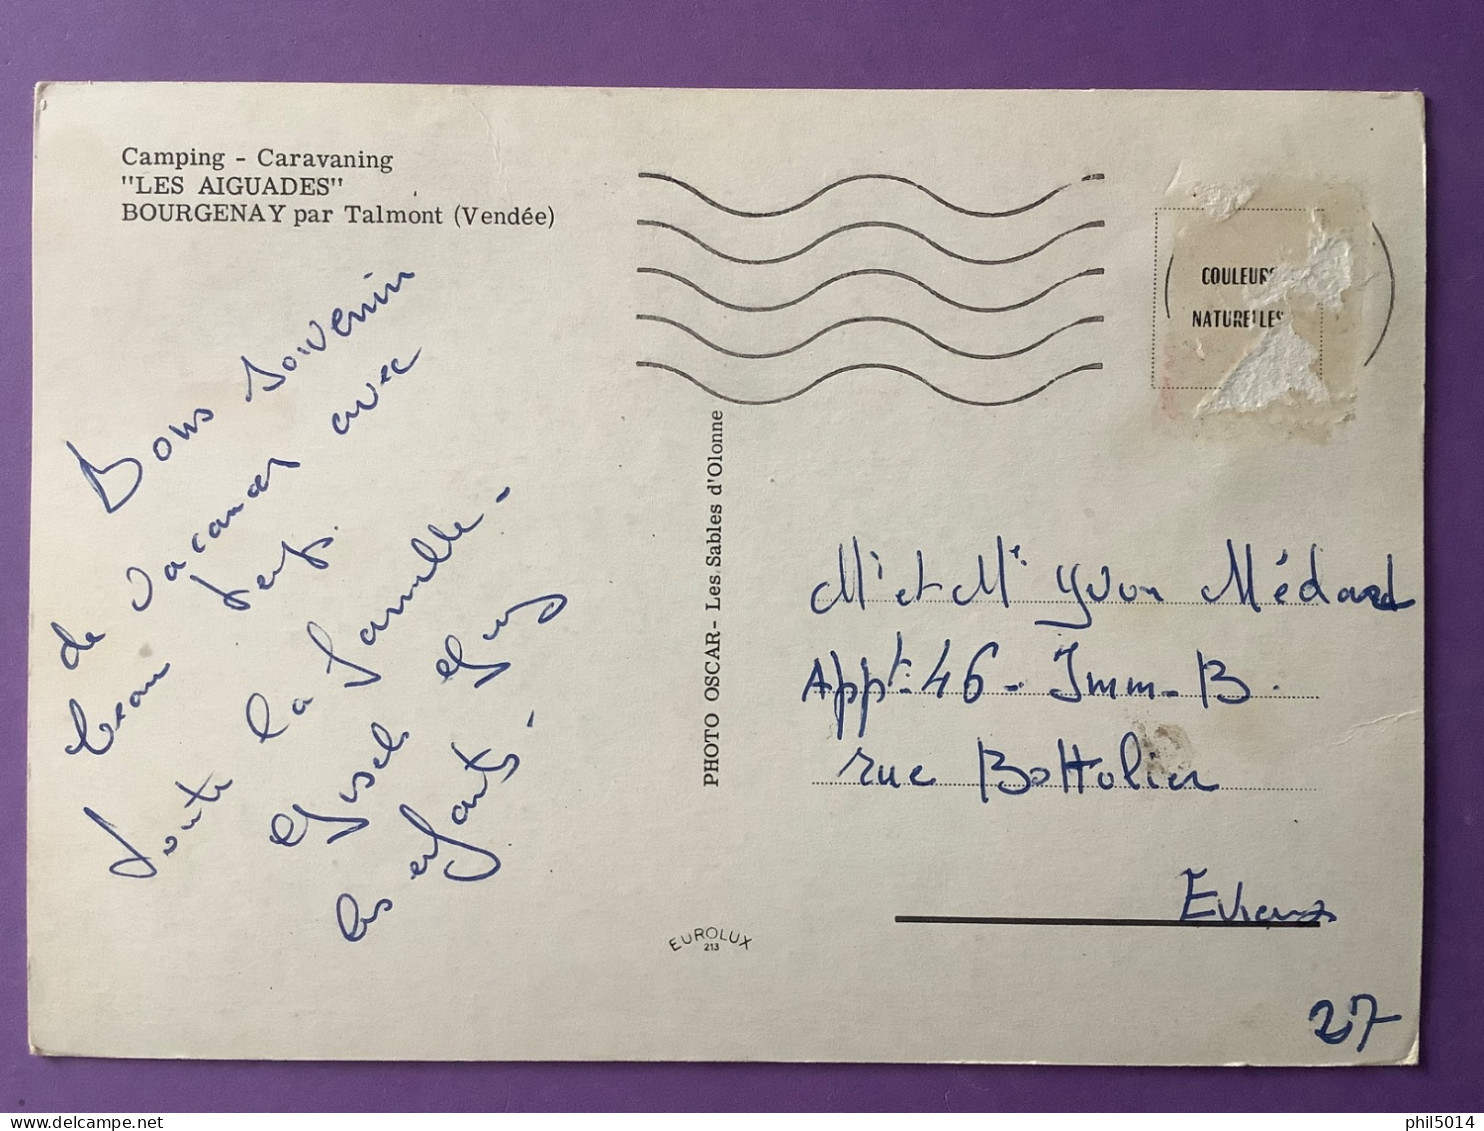 Camping - Caravaning
"LES AIGUADES"
BOURGENAY par Talmont (Vendée)
Bons souvenir
de vacances avec
beau temps.
toute la famille -
Gisèle Guy
les enfants -
PHOTO OSCAR - Les Sables d'Olonne
EUROLUX
213
COULEURS
NATURELLES
Mr et Me Yvon Médard
Appt. 46 - Imm - B.
rue Bottolier
Evreux
27
phil5014